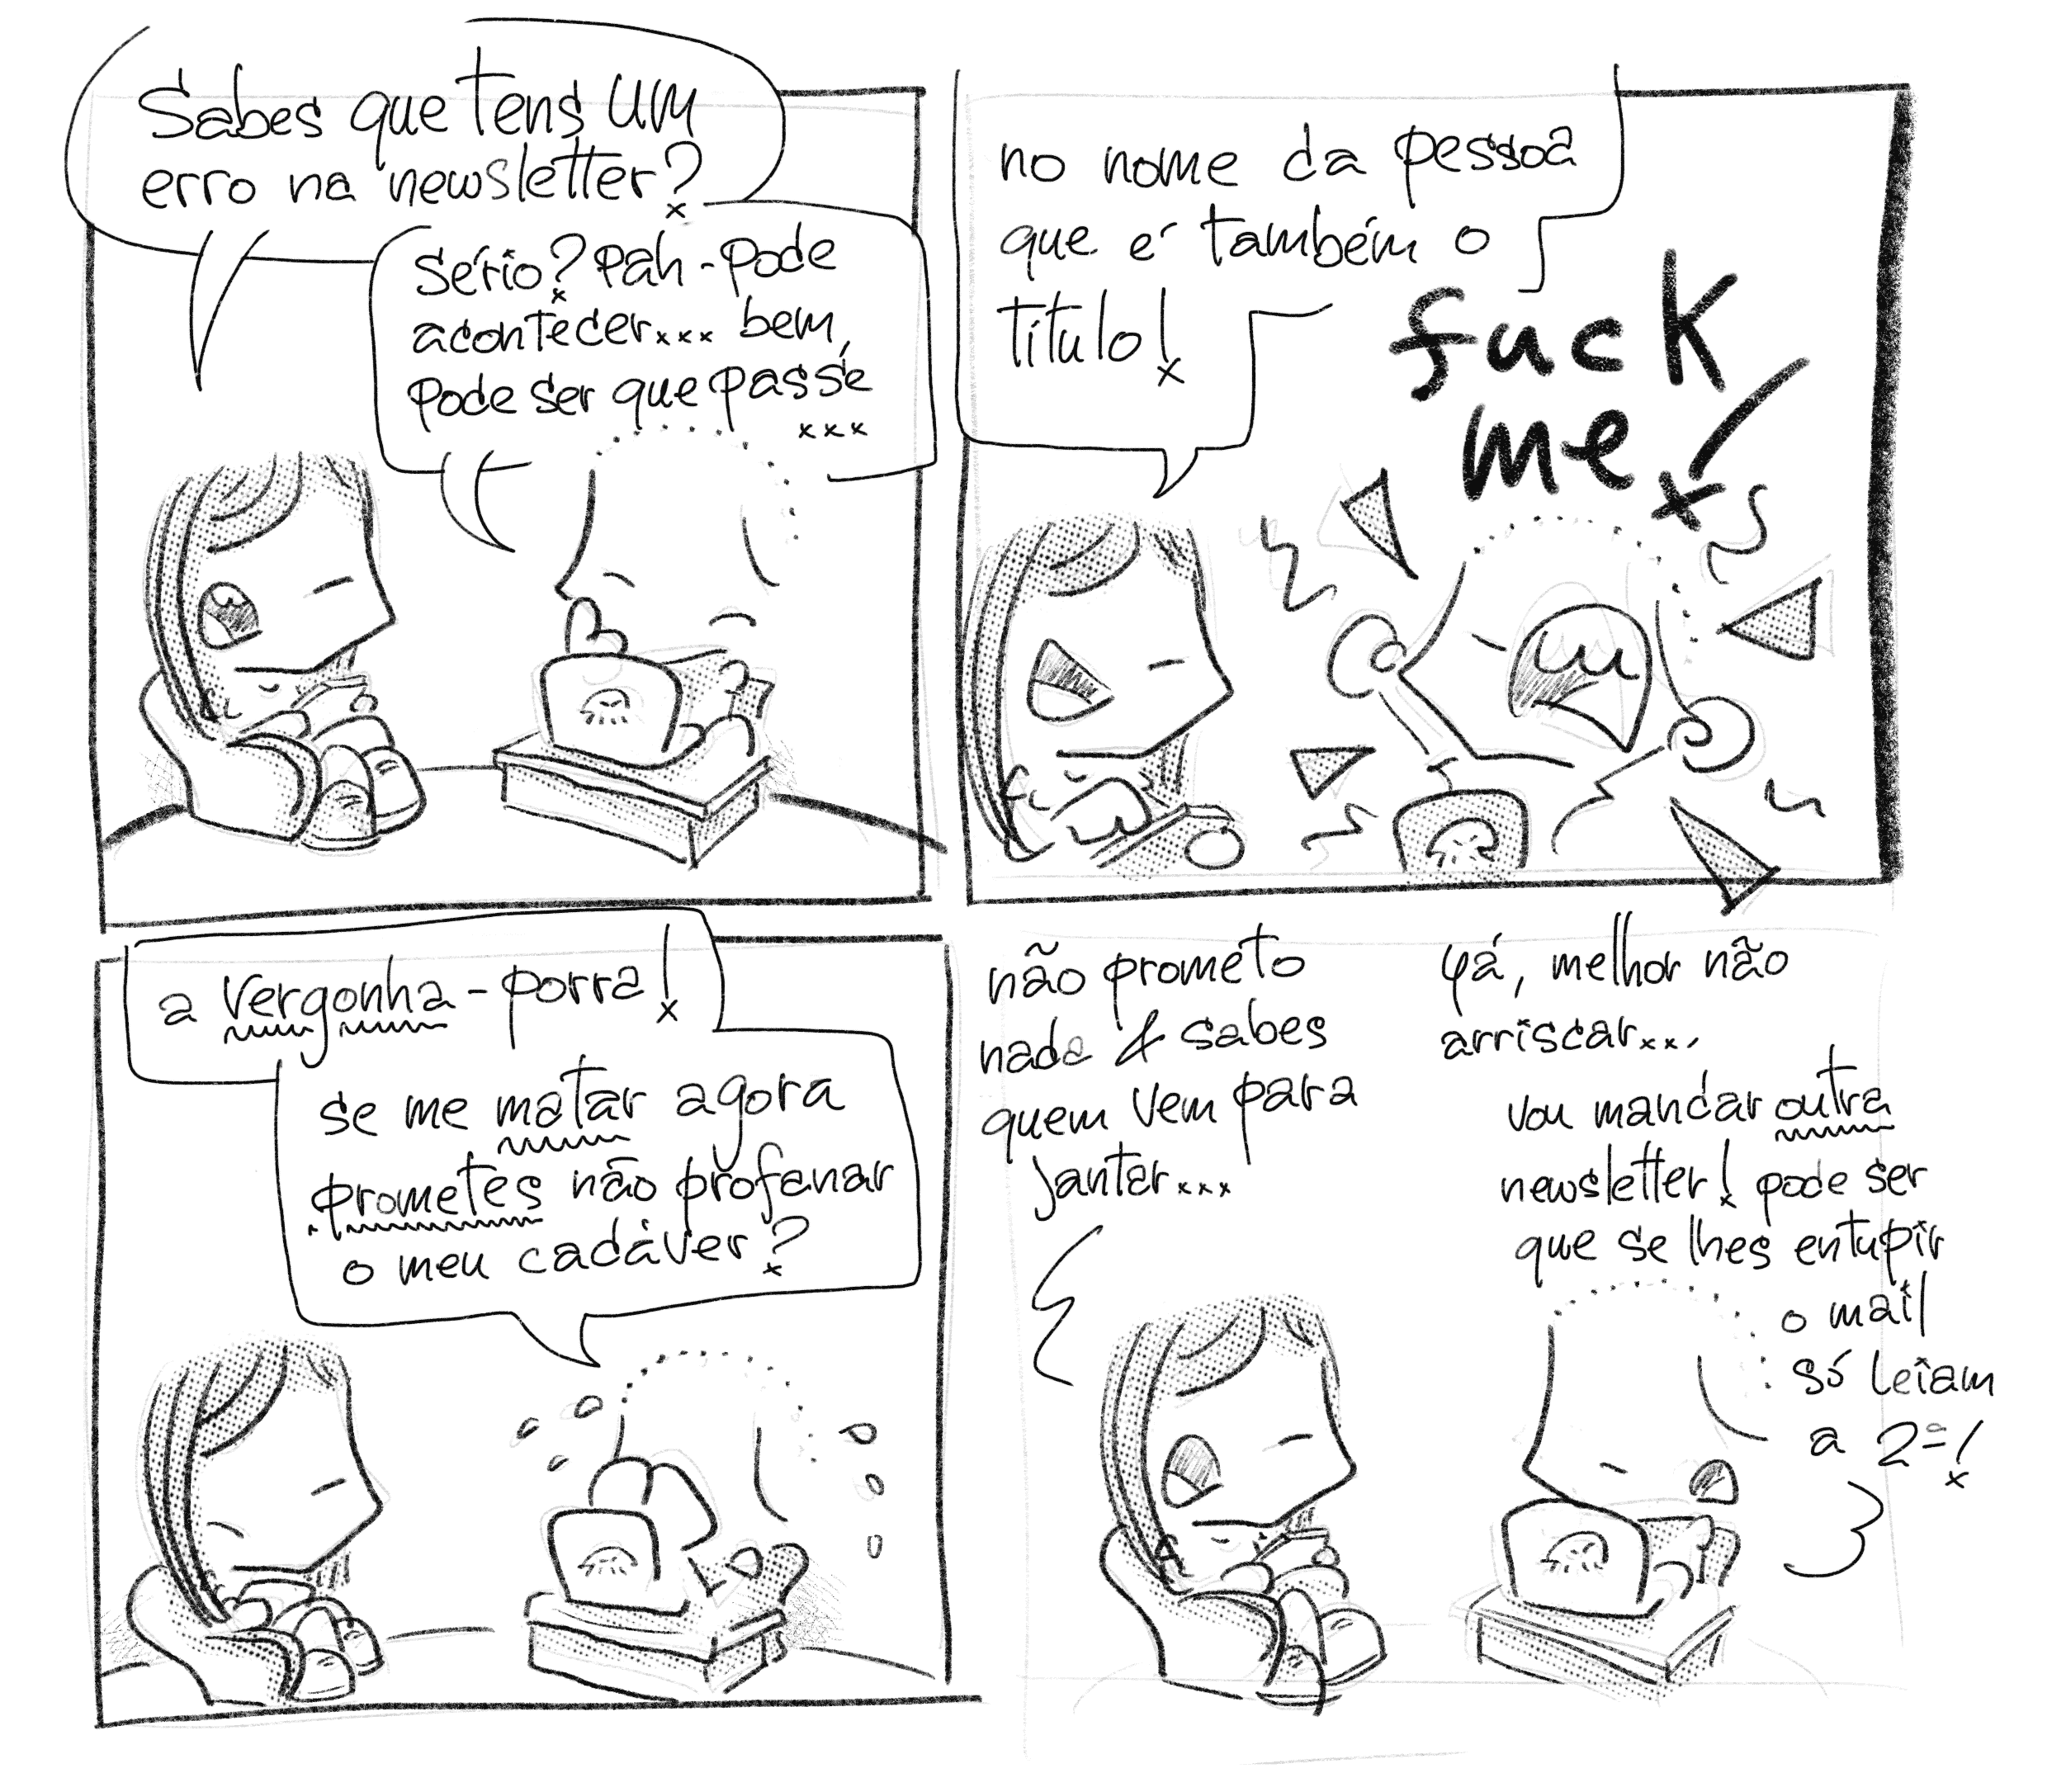 Sabes que tens um
erro na newsletter?
sério? pah - pode
acontecer... bem,
pode ser que passe
...
no nome da pessoa
que é também o
título!
fuck
me!
a vergonha - porra!
se me matar agora
prometes não profanar
o meu cadáver?
não prometo
nada & sabes
quem vem para
jantar...
yá, melhor não
arriscar...
vou mandar outra
newsletter! pode ser
que se lhes entupir
o mail
só leiam
a 2ª!